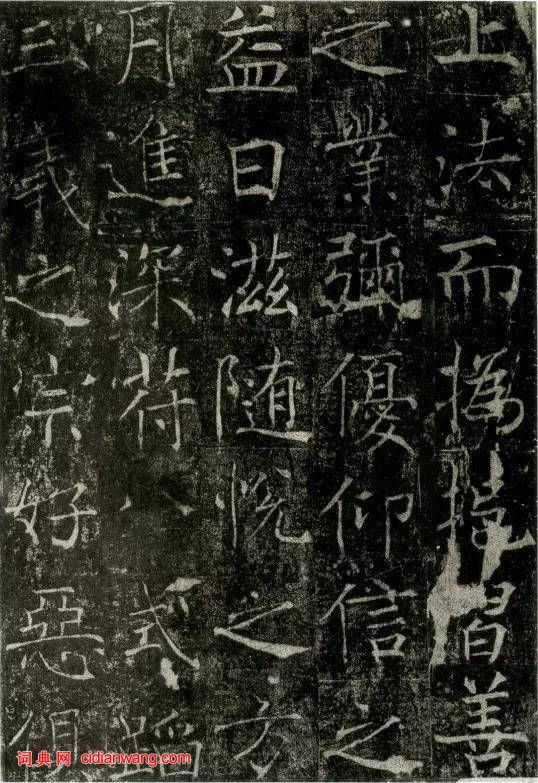 上法而撝㨗習善
之業彌優仰信之
益日滋随悅之方
月進深符八式蹈
三羲之宗好惡俱
词典网 cidianwang.com